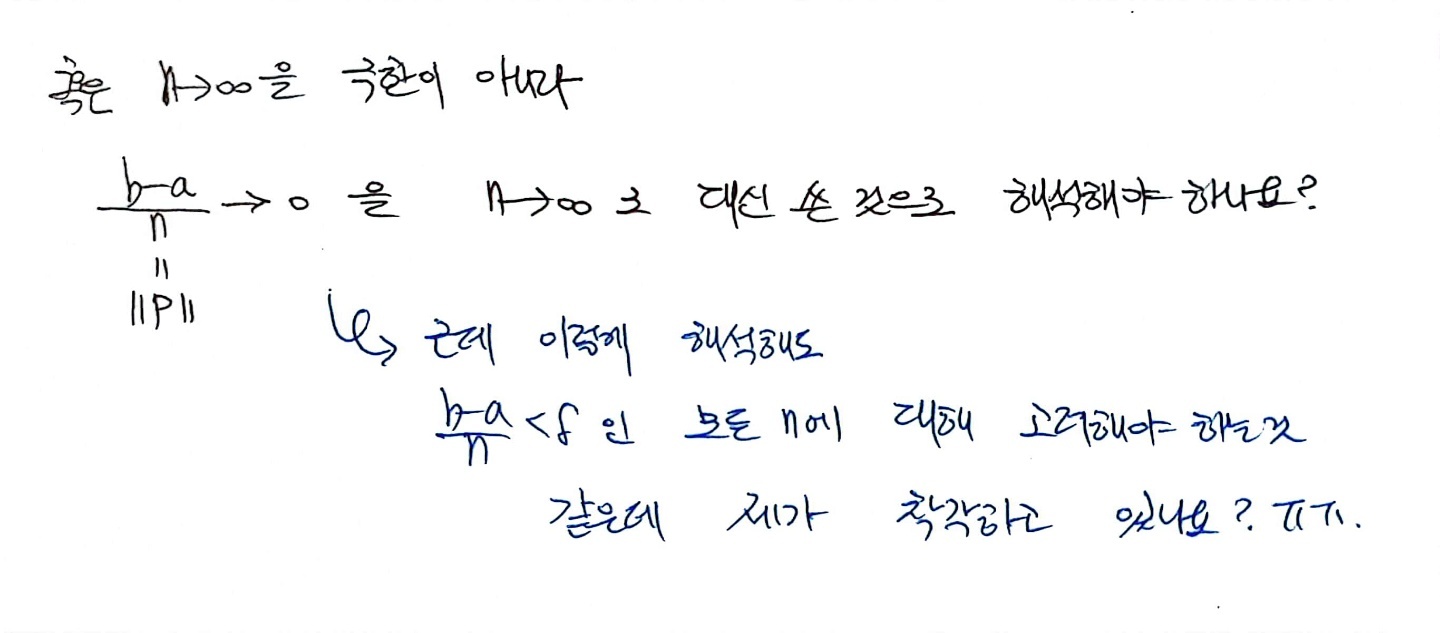 혹은 n→∞을 극한이 아니라
b-a/n → 0 을 n→∞로 대신 쓴 것으로 해석해야 하나요?
=
||P||
↳ 근데 이렇게 해석해도
b-a/n < δ 인 모든 n에 대해 고려해야 하는것
같은데 제가 착각하고 있나요? ㅠㅠ.